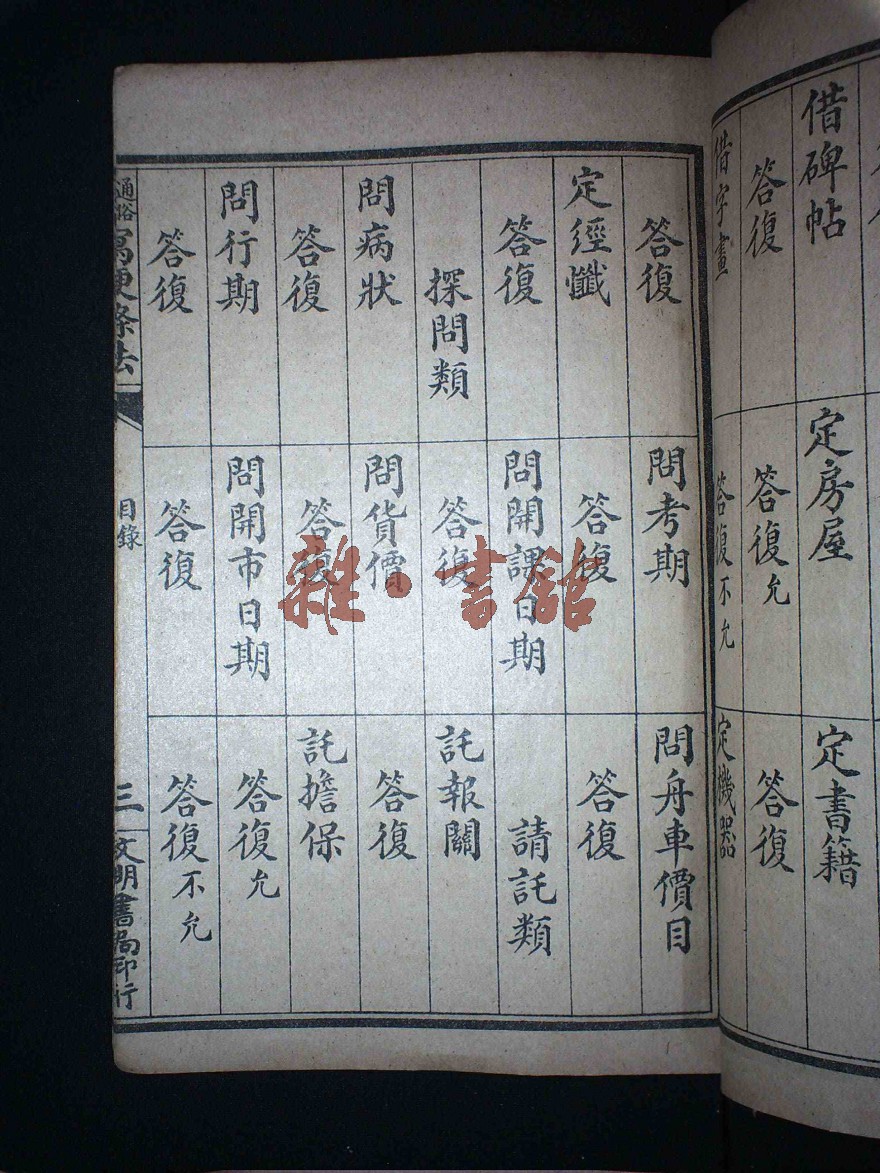 借碑帖
定房屋
定書籍
答復
答復允
答復
借字畫
答復不允
定機器
答復
定經懺
答復
探問類
問病狀
答復
問行期
答復
問考期
答復
問開課日期
答復
問貨價
答復
問開市日期
答復
問舟車價目
答復
請託類
託報關
答復
託擔保
答復允
答復不允
通俗寫便條法
目錄
三
文明書局印行
雜·書館